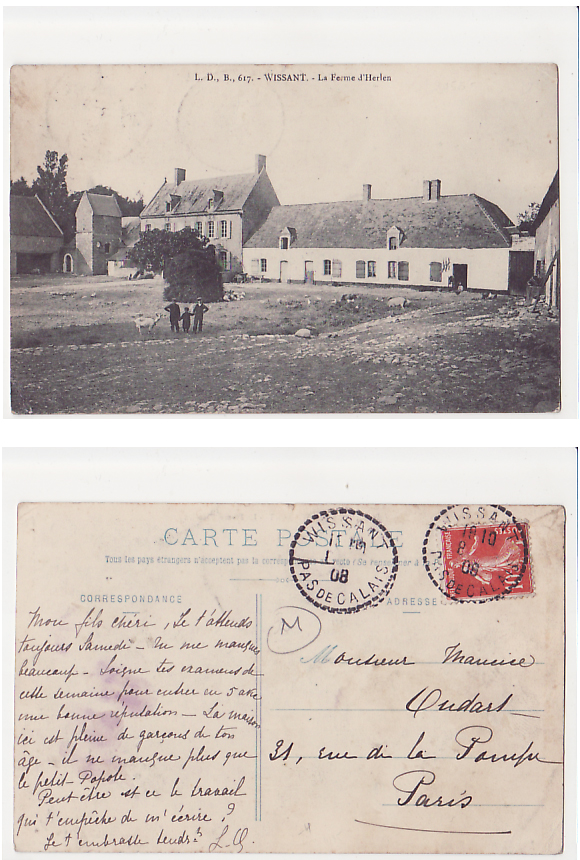 L. D., B., 617. - WISSANT. - La Ferme d'Herlen
CARTE POSTALE
Tous les pays étrangers n'acceptent pas la correspondance au recto (Se renseigner à la
WISSANT
PAS DE CALAIS
08
WISSANT
PAS DE CALAIS
08
CORRESPONDANCE
ADRESSE
M
Mon fils chéri, Je t'attends
toujours Samedi - Tu me manques
beaucoup - Soigne tes examens de
cette semaine pour entrer en 5 avec
une bonne réputation - La maison
ici est pleine de garçons de ton
âge - il ne manque plus que
le petit Popote.
Peut être est ce le travail
qui t'empêche de m'écrire ?
Je t'embrasse tendt L.O.
Monsieur Maurice
Oudart
31, rue de la Pompe
Paris
M